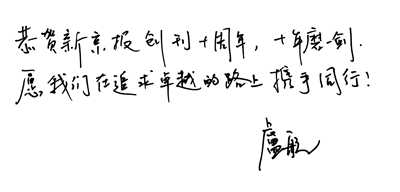 恭贺新京报创刊十周年，十年磨一剑.
愿我们在追求卓越的路上携手同行！